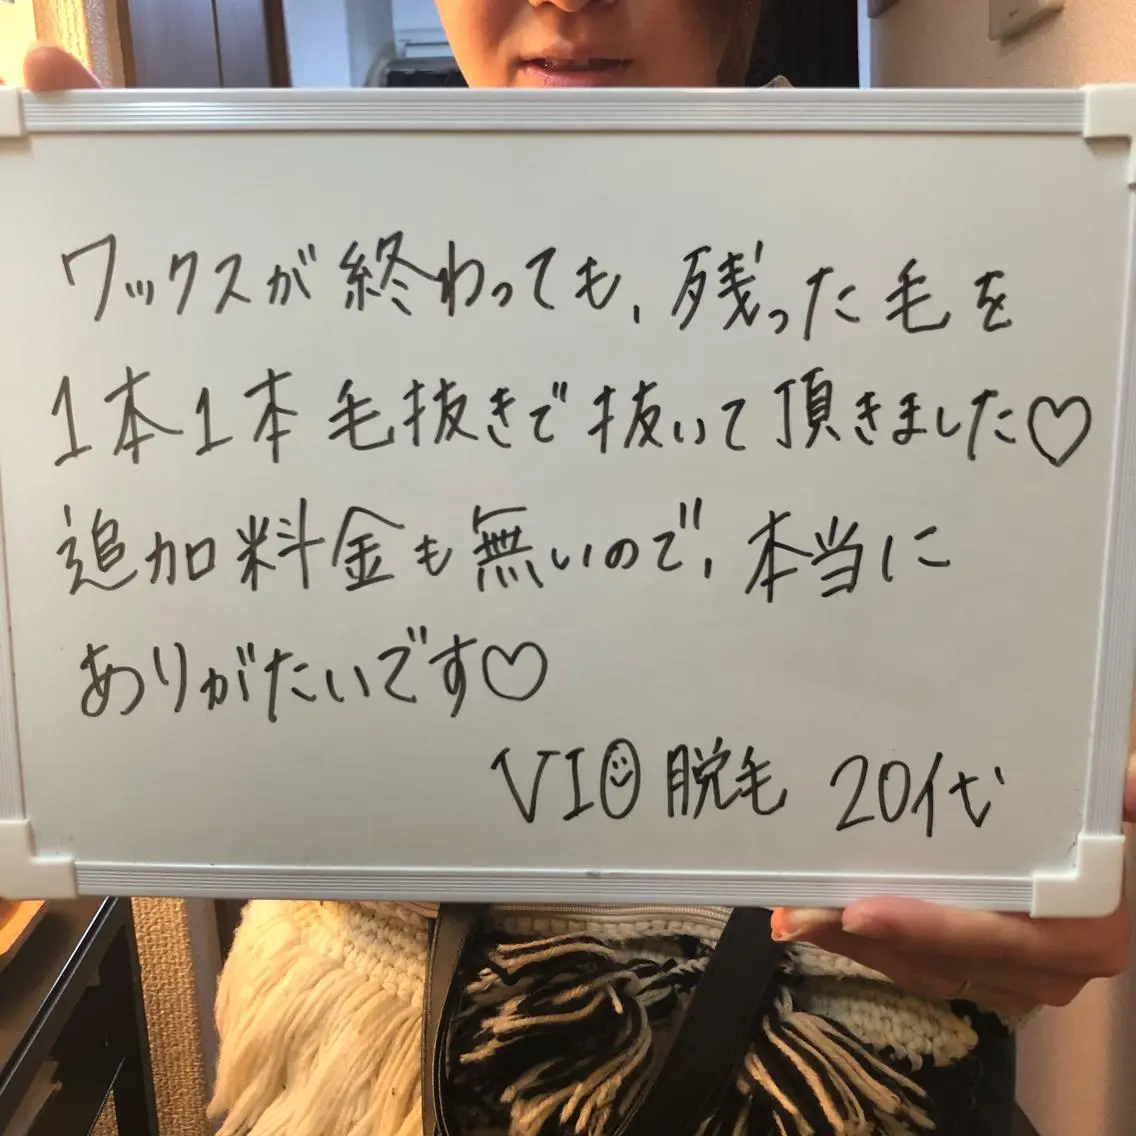 ワックスが終わっても、残った毛を
1本1本毛抜きで抜いて頂きました♡
追加料金も無いので、本当に
ありがたいです♡
VIO脱毛 20代